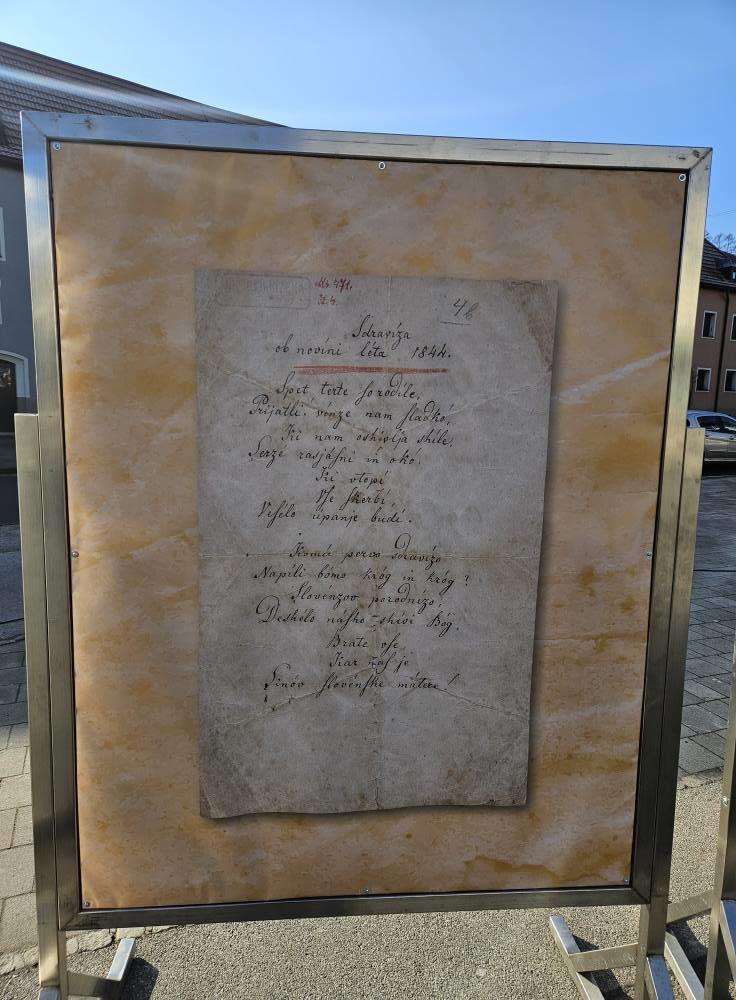 Ms 471,
N. 4.
48
Sdravíza
ob novíni léta 1844.
Spet terte so rodile,
Prijatli! vinze nam sladkó,
Ki nam oshivlja shile,
Serzé rasjásni in okó.
Ki vtopí
Vse skerbí,
Vesélo úpanje budí.
Komú pervo sdravízo
Napíli bómo króg in króg?
Slovénzov porodnízo,
Deshélo násho shívi Bóg.
Brate vse
Kar nas je
Sinóv slovénske mátere!